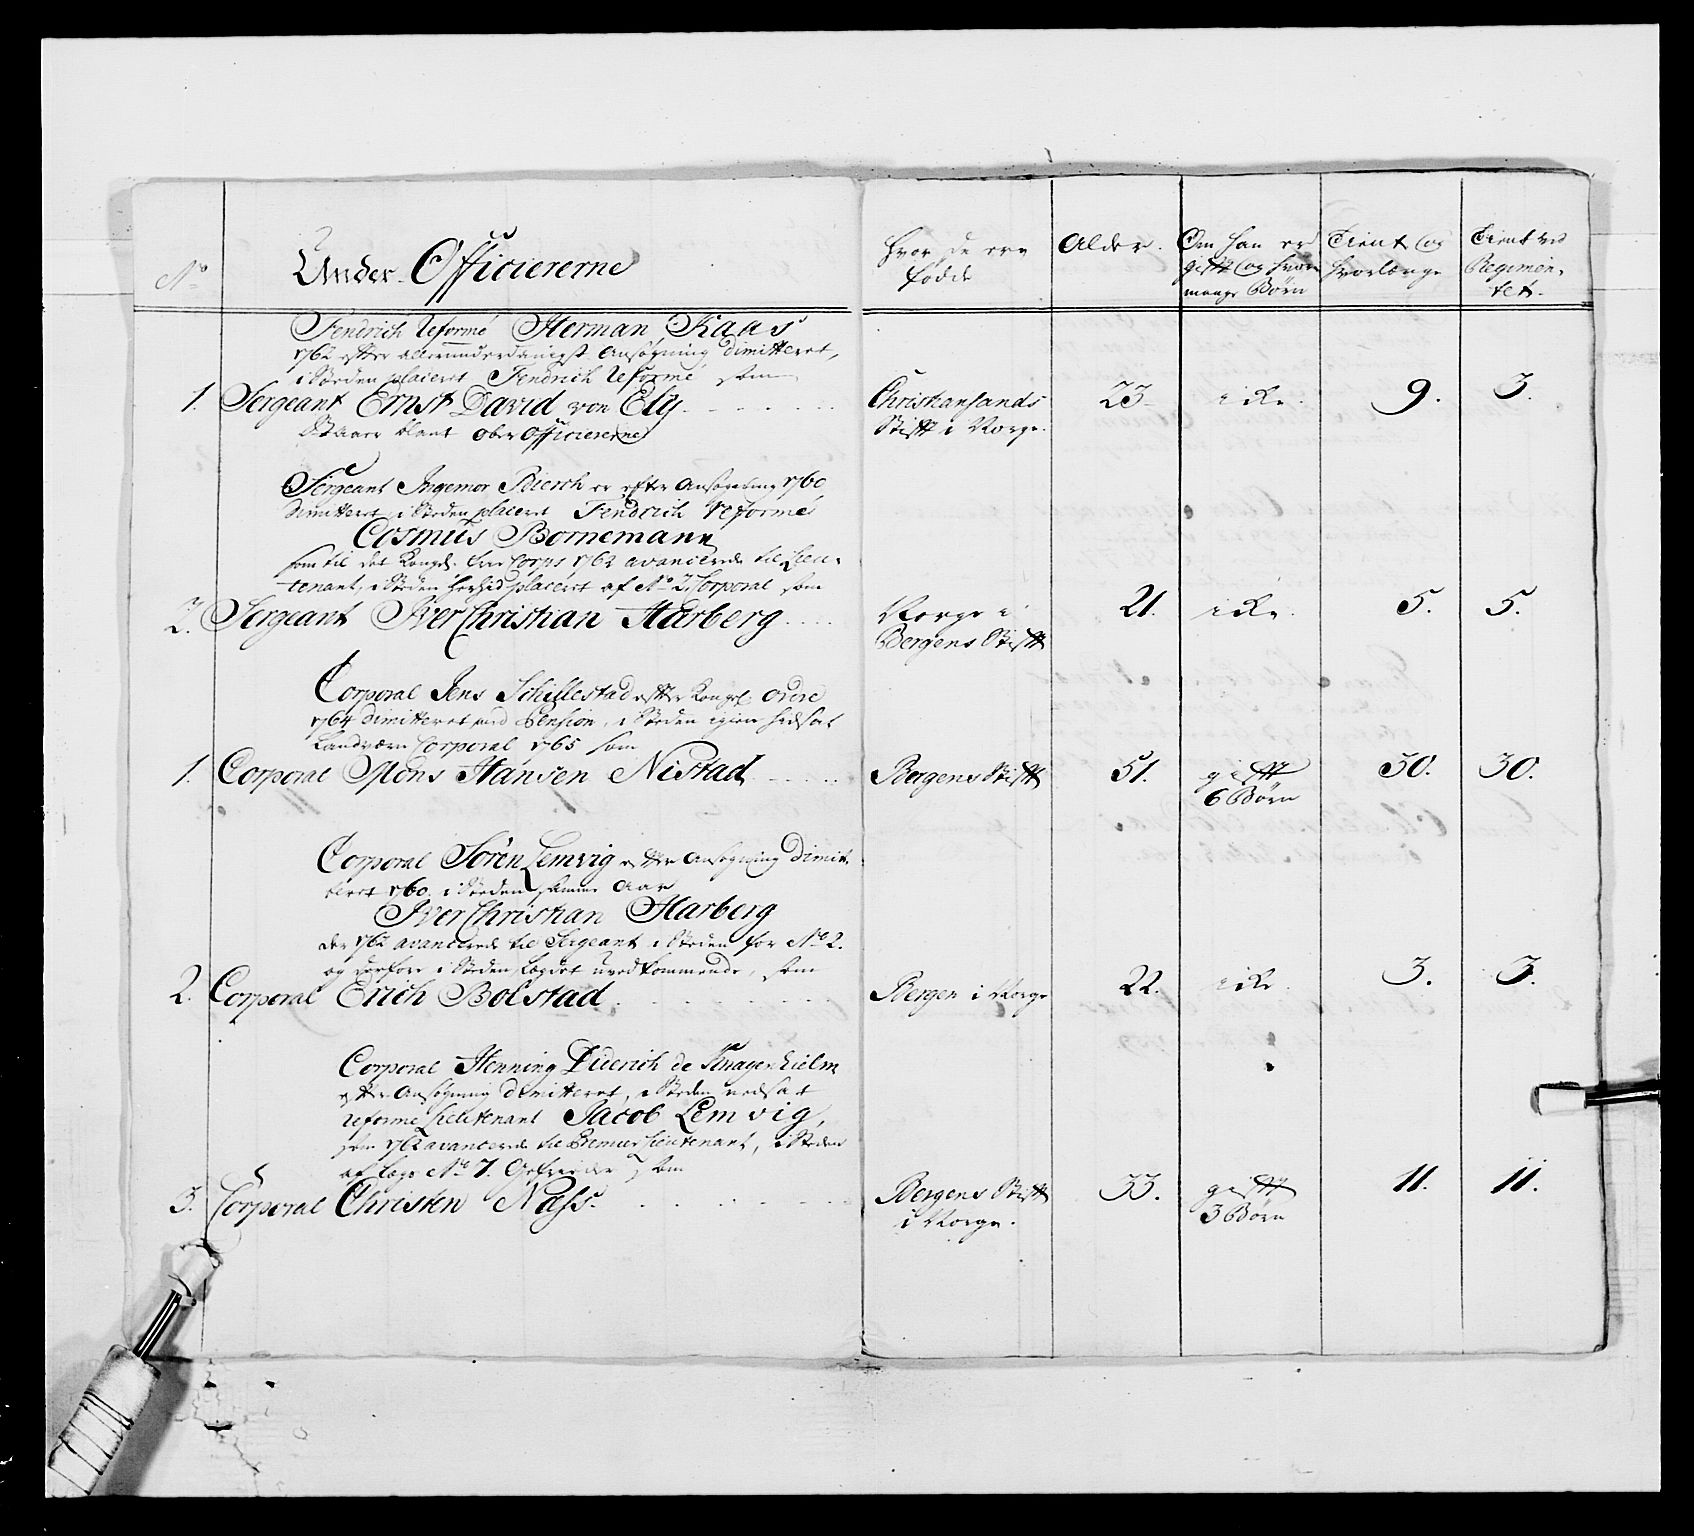 No
Under-Officiererne
Hvor de ere
fødde
Alder.
Om han er
gift og hvor
mange Børn
Tient og
hvorlænge
Tient ved
Regimen-
tet.
Fendrich Reformé Herman Kaas
1762 efter allerunderdanigst Ansøgning dimitteret,
i Steden placeret Fendrich Reformé som
1. Sergeant Ernst David von Ely
Staaer blant Ober Officiererne
Christiansands
Stift i Norge.
23
icke.
9.
3.
Sergeant Ingemor Bierch er efter Ansøgning 1760
dimitteret, i Steden placeret Fendrich Reformé
Cosmus Bornemann
som til det Kongel. Corps 1762 avancerede til Lieu-
tenant, i Steden placeret af No 2 Corporal som
2. Sergeant Iver Christian Harberg
Norge i
Bergens Stift
21.
icke.
5.
5.
Corporal Jens Schillestad efter Kongel. Ordre
1764 dimitteret med Pension, i Steden igien
Landværn Corporal 1765 som
1. Corporal Mons Hansen Nistad
Bergens Stift
51.
gift
6 Børn
30.
30.
Corporal Søren Lemvig efter Ansøgning dimit-
teret 1760. i Steden samme Aar
Iver Christian Harberg
der 1762 avancerede til Sergeant i Steden for No 2.
og derfore i Steden Lægdet uvedkommende, som
2. Corporal Erich Bolstad
Bergen i Norge
22.
icke.
3.
3.
Corporal Henning Diderich de Knagenhielm
efter Ansøgning dimitteret, i Steden nedsat
reformé Lieutenant Jacob Lemvig,
som 1762 avancerede til Premier Lieutenant, i Steden
af Læge No 7. Gefreider som
3. Corporal Christen Næss.
Bergens Stift
i Norge.
33.
gift
3 Børn
11.
11.